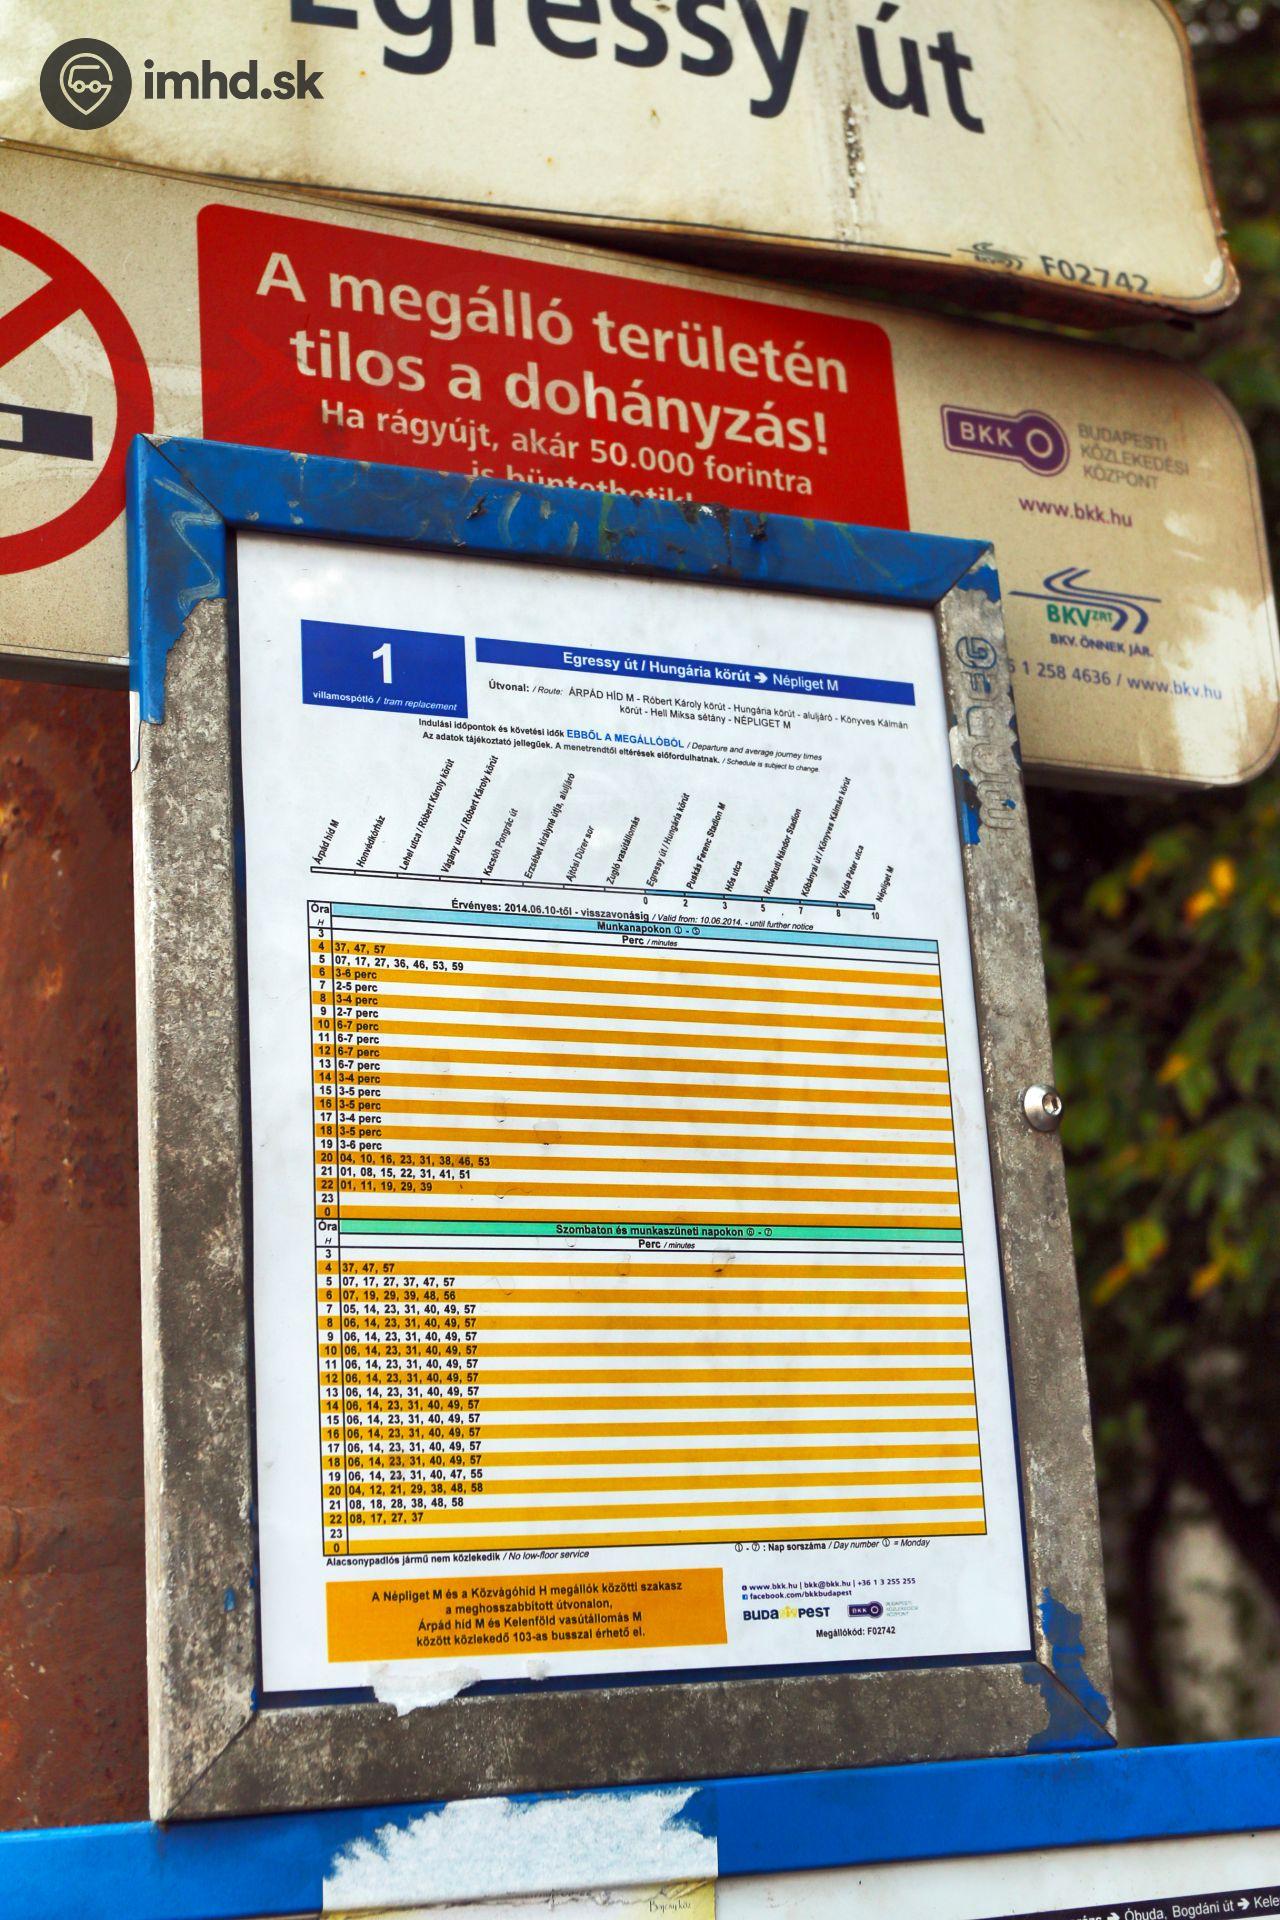 imhd.sk
Egressy út
F02742
A megálló területén
tilos a dohányzás!
Ha rágyújt, akár 50.000 forintra
is büntethetik!
BKK
BUDAPESTI
KÖZLEKEDÉSI
KÖZPONT
www.bkk.hu
BKV ZRT
BKV. ÖNNEK JÁR.
1 258 4636 / www.bkv.hu
1
villamospótló / tram replacement
Egressy út / Hungária körút ➔ Népliget M
Útvonal: / Route: ÁRPÁD HÍD M - Róbert Károly körút - Hungária körút - aluljáró - Könyves Kálmán
körút - Hell Miksa sétány - NÉPLIGET M
Indulási időpontok és követési idők EBBŐL A MEGÁLLÓBÓL / Departure and average journey times
Az adatok tájékoztató jellegűek. A menetrendtől eltérések előfordulhatnak. / Schedule is subject to change.
Árpád híd M
Honvédkórház
Lehel utca / Róbert Károly körút
Vágány utca / Róbert Károly körút
Kacsóh Pongrác út
Erzsébet királyné útja, aluljáró
Ajtósi Dürer sor
Zugló vasútállomás
Egressy út / Hungária körút
Puskás Ferenc Stadion M
Hős utca
Hidegkuti Nándor Stadion
Kőbányai út / Könyves Kálmán körút
Vajda Péter utca
Népliget M
0 2 3 5 7 8 10
Érvényes: 2014.06.10-től - visszavonásig / Valid from: 10.06.2014. - until further notice
Óra Munkanapokon ① - ⑤
H Perc / minutes
3
4 37, 47, 57
5 07, 17, 27, 36, 46, 53, 59
6 3-6 perc
7 2-5 perc
8 3-4 perc
9 2-7 perc
10 6-7 perc
11 6-7 perc
12 6-7 perc
13 6-7 perc
14 3-4 perc
15 3-5 perc
16 3-5 perc
17 3-4 perc
18 3-5 perc
19 3-6 perc
20 04, 10, 16, 23, 31, 38, 46, 53
21 01, 08, 15, 22, 31, 41, 51
22 01, 11, 19, 29, 39
23
0
Óra Szombaton és munkaszüneti napokon ⑥ - ⑦
H Perc / minutes
3
4 37, 47, 57
5 07, 17, 27, 37, 47, 57
6 07, 19, 29, 39, 48, 56
7 05, 14, 23, 31, 40, 49, 57
8 06, 14, 23, 31, 40, 49, 57
9 06, 14, 23, 31, 40, 49, 57
10 06, 14, 23, 31, 40, 49, 57
11 06, 14, 23, 31, 40, 49, 57
12 06, 14, 23, 31, 40, 49, 57
13 06, 14, 23, 31, 40, 49, 57
14 06, 14, 23, 31, 40, 49, 57
15 06, 14, 23, 31, 40, 49, 57
16 06, 14, 23, 31, 40, 49, 57
17 06, 14, 23, 31, 40, 49, 57
18 06, 14, 23, 31, 40, 49, 57
19 06, 14, 23, 31, 40, 47, 55
20 04, 12, 21, 29, 38, 48, 58
21 08, 18, 28, 38, 48, 58
22 08, 17, 27, 37
23
0
Alacsonypadlós jármű nem közlekedik / No low-floor service
① - ⑦ : Nap sorszáma / Day number ① = Monday
A Népliget M és a Közvágóhíd H megállók közötti szakasz
a meghosszabbított útvonalon,
Árpád híd M és Kelenföld vasútállomás M
között közlekedő 103-as busszal érhető el.
www.bkk.hu | bkk@bkk.hu | +36 1 3 255 255
facebook.com/bkkbudapest
BUDAPEST
BKK
BUDAPESTI
KÖZLEKEDÉSI
KÖZPONT
Megállókód: F02742
Óbuda, Bogdáni út ➔ Kele